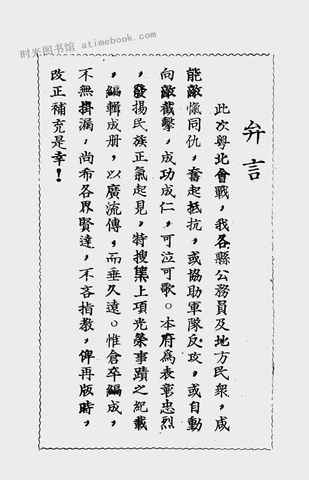 时光图书馆 atimebook.com
弁言
此次粤北會戰，我各縣公務員及地方民衆，咸
能敵愾同仇，奮起抵抗，或協助軍隊反攻，或自動
向敵截擊，成功成仁，可泣可歌。本府爲表彰忠烈
，發揚民族正氣起見，特搜集上項光榮事蹟之紀載
，編輯成册，以廣流傳，而垂久遠。惟倉卒編成，
不無掛漏，尚希各界賢達，不吝指教，俾再版時，
改正補充是幸！